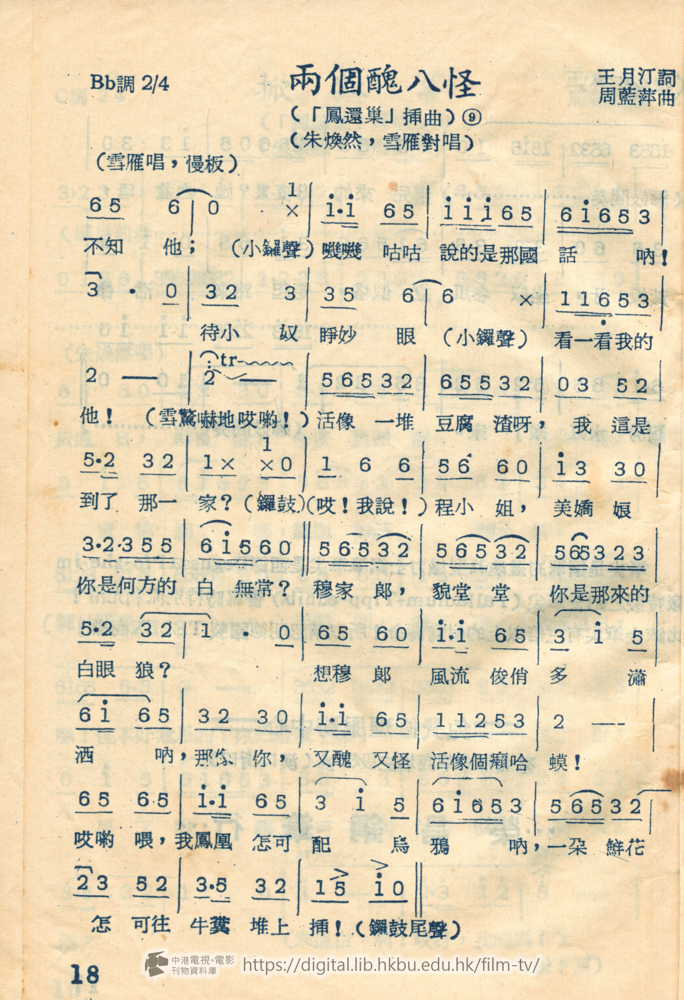 Bb調 2/4
兩個醜八怪
王月汀詞
周藍萍曲
(「鳳還巢」插曲)⑨
(朱煥然,雪雁對唱)
(雪雁唱,慢板)
65 6 | 0 1/× | i·i 65 | iii65 | 6i653 |
不知 他; (小鑼聲) 嘰嘰 咕咕 說的是那國 話 吶!
3 · 0 | 32 3 | 35 6 | 6 × | 11653 |
待小 奴 睜妙 眼 (小鑼聲) 看一看我的
2 — | 2 — tr | 56532 | 65532 | 03 52 |
他! (雪驚嚇地哎喲!) 活像 一堆 豆腐 渣呀, 我 這是
5·2 32 | 1× 1/×0 | 1 6 6 | 56 60 | i3 30 |
到了 那一 家? (鑼鼓)(哎!我說!) 程小 姐, 美嬌 娘
3·2·355 | 6i560 | 56532 | 56532 | 565323 |
你是何方的 白 無常? 穆家 郎, 貌堂 堂, 你是那來的
5·2 32 | 1 · 0 | 65 60 | i·i 65 | 3 i 5 |
白眼 狼? 想穆 郎 風流 俊俏 多 瀟
6i 65 | 32 30 | i·i 65 | 11253 | 2 — |
洒 吶, 那像 你, 又醜 又怪 活像個癩哈 蟆!
65 6·5 | i·i 65 | 3 i 5 | 6i653 | 56532 |
哎喲 喂, 我鳳凰 怎可 配 烏 鴉 吶, 一朵 鮮花
23 52 | 3·5 32 | 15 i0 ||
怎 可往 牛糞 堆上 插! (鑼鼓尾聲)
18
中港電視·電影
刊物資料庫
https://digital.lib.hkbu.edu.hk/film-tv/